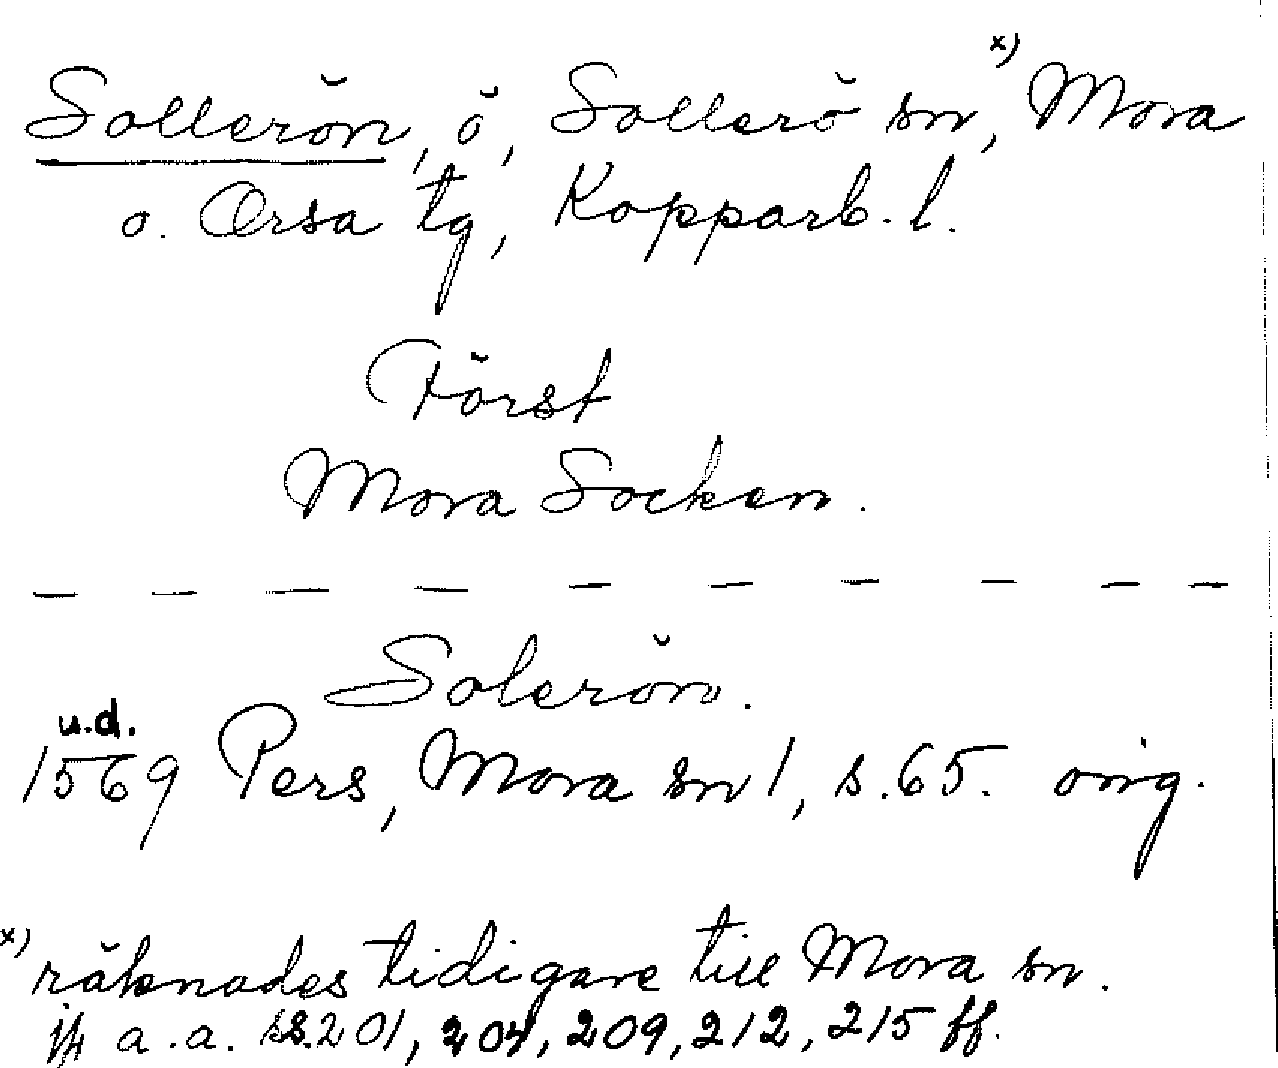 Sollerön, ö, Sollerö sn, x) Mora
o. Orsa tg, Kopparb. l.
Först
Mora Socken.
— — — — — — — — — —
Solerön.
u.d.
1569 Pers, Mora sn 1, s. 65. orig.
x) räknades tidigare till Mora sn.
jfr a.a. ss. 201, 204, 209, 212, 215 ff.